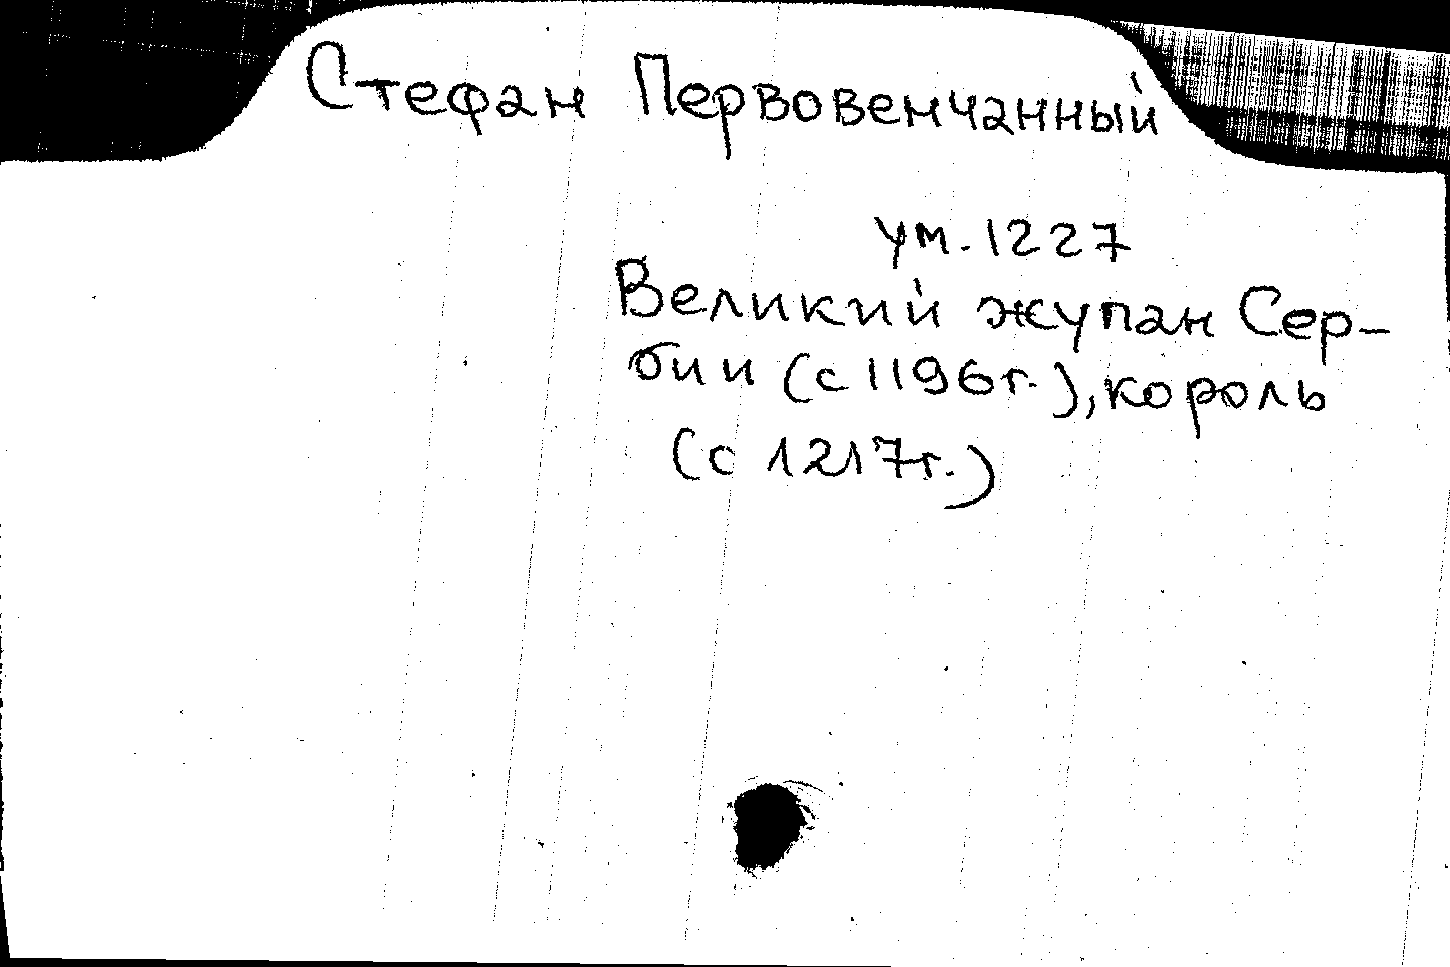 Стефан Первовенчанный
ум. 1227
Великий жупан Сер-
бии (с 1196г.), король
(с 1217г.)